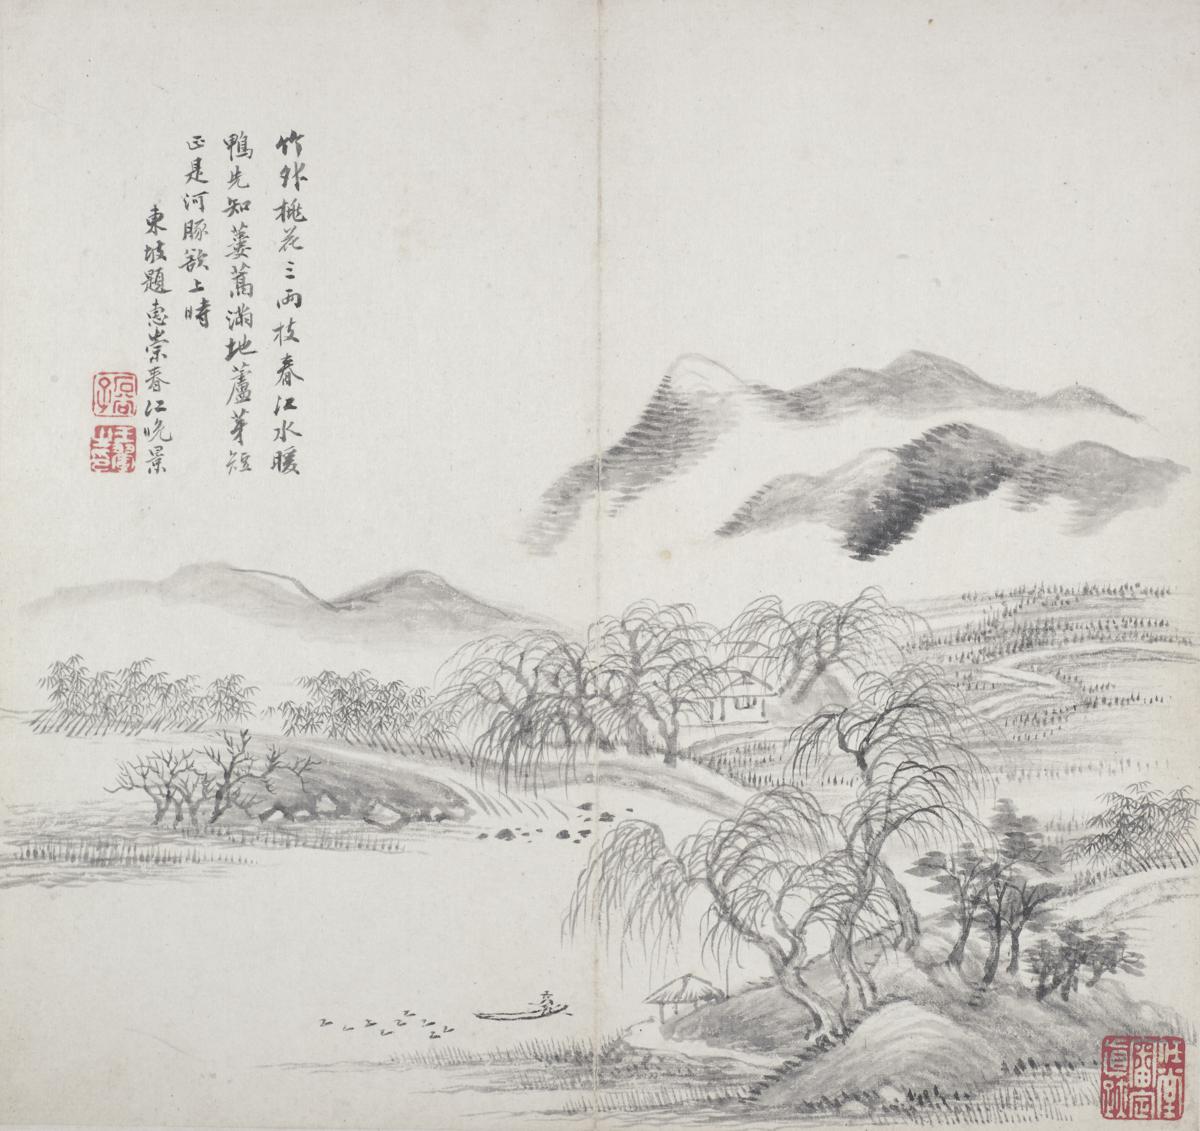 竹外桃花三兩枝春江水暖
鴨先知蔞蒿滿地蘆芽短
正是河豚欲上時
東坡題惠崇春江晚景
石谷子
王翬之印